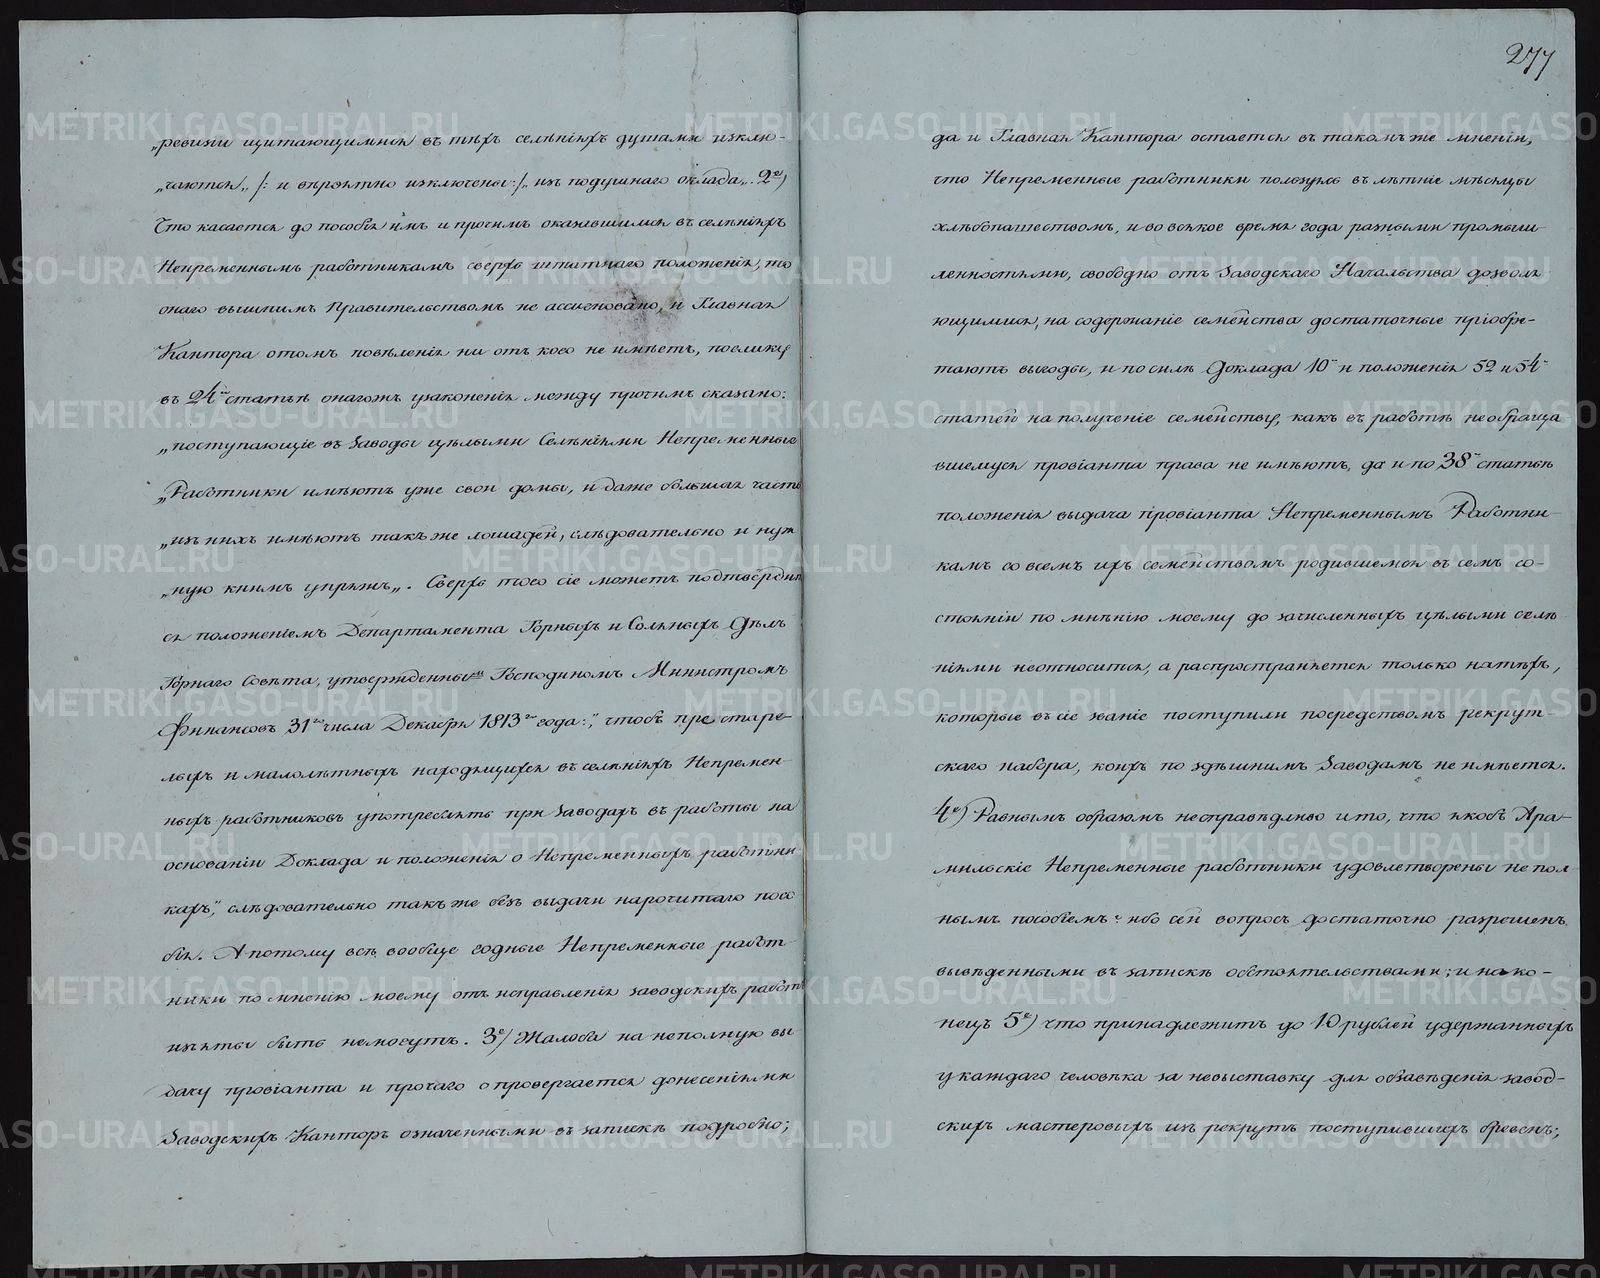 „ревизіи щитающимися въ тѣхъ селѣніяхъ душами исклю-
„чаются„ /: и вѣроятно изключены :/ „изъ подушнаго оклада„. 2е)
Что касается до пособія имъ и прочимъ оказавшимся въ селѣніяхъ
Непременнымъ работникамъ сверхъ штатнаго положенія, то
онаго вышнимъ Правительствомъ не ассигновано, и Главная
Кантора отомъ повѣленія ни отъ кого не имѣетъ, поелику
въ 24й статьѣ онагожъ узаконенія между прочимъ сказано:
„поступающіе въ заводы цѣлыми Селѣніями Непременные
„Работники имѣютъ уже свои домы, и даже большая часть
„изъ нихъ имѣютъ такъ же лошадей, слѣдовательно и нуж
„ную книмъ упряжь„. Сверхъ того сіе можетъ подтвердит
ся положеніемъ Департамента Горныхъ и Соляныхъ Дѣлъ
Горнаго Совѣта, утвержденнымъ Господиномъ Министромъ
Финансовъ 31го числа Декабря 1813го года: „чтобъ престаре-
лыхъ и малолѣтныхъ находящихся въ селѣніяхъ Непремен-
ныхъ работниковъ употреблять при заводахъ въ работы на
основаніи Доклада и положенія о Непременныхъ работни
кахъ„, слѣдовательно такъ же безъ выдачи нарочитаго посо
бія. А потому всѣ вообще годные Непременные работ-
ники по мнению моему отъ исправленія заводскихъ работъ
изъяты быть немогутъ. 3е) Жалоба на неполную вы
дачу провіанта и прочаго опровергается донесеніями
Заводскихъ Канторъ означенными въ запискѣ подробно;
277
да и Главная Кантора остается въ такомъ же мненіи,
что Непременные работники пользуясь въ лѣтніе мѣсяцы
хлѣбопашествомъ, и во всякое время года разными промыш
ленностями, свободно отъ Заводскаго Начальства дозволя
ющимися, на содержаніе семѣйства достаточные пріобре-
таютъ выгоды, и по силѣ Доклада 10й и положенія 52 и 54й
статей на полученіе семѣйству, какъ въ работѣ необраща
вшемуся провіанта права не имѣютъ, да и по 38й статьѣ
положенія выдача провіанта Непременнымъ Работни-
камъ со всемъ ихъ семѣйствомъ родившемся въ семъ со-
стояніи по мнѣнію моему до зачисленныхъ цѣлыми селѣ
ніями неотносится, а распространяется только натѣхъ,
которые въ сіе званіе поступили посредствомъ рекрут-
скаго набора, коихъ по здѣшнимъ Заводамъ не имѣется.
4е) Равнымъ образомъ несправѣдливо и то, что якобъ Ара-
мильскіе Непременные работники удовлетворены не пол
нымъ пособіемъ: ибо сей вопросъ достаточно разрешенъ
вывѣденными въ запискѣ обстоятельствами; и нако-
нецъ 5е) что принадлежитъ до 10 рублей удержанныхъ
у каждаго человѣка за невыставку для обзавѣденія завод-
скихъ мастеровыхъ изъ рекрутъ поступившихъ бревенъ;